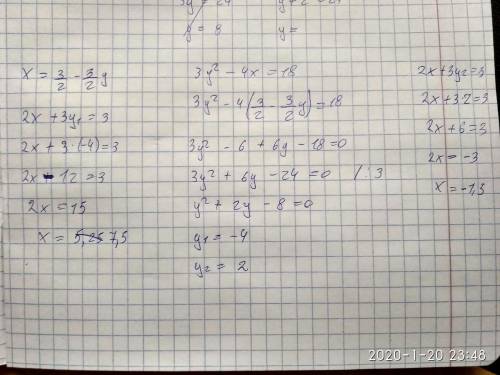 3y = 24
y = 8
y =
x = 3/2 - 3/2 y
2x + 3y₁ = 3
2x + 3·(-4) = 3
2x - 12 = 3
2x = 15
x = 5,25 7,5
3y² - 4x = 18
3y² - 4(3/2 - 3/2 y) = 18
3y² - 6 + 6y - 18 = 0
3y² + 6y - 24 = 0 /:3
y² + 2y - 8 = 0
y₁ = -4
y₂ = 2
2x + 3y₂ = 3
2x + 3·2 = 3
2x + 6 = 3
2x = -3
x = -1,5
2020-1-20 23:48